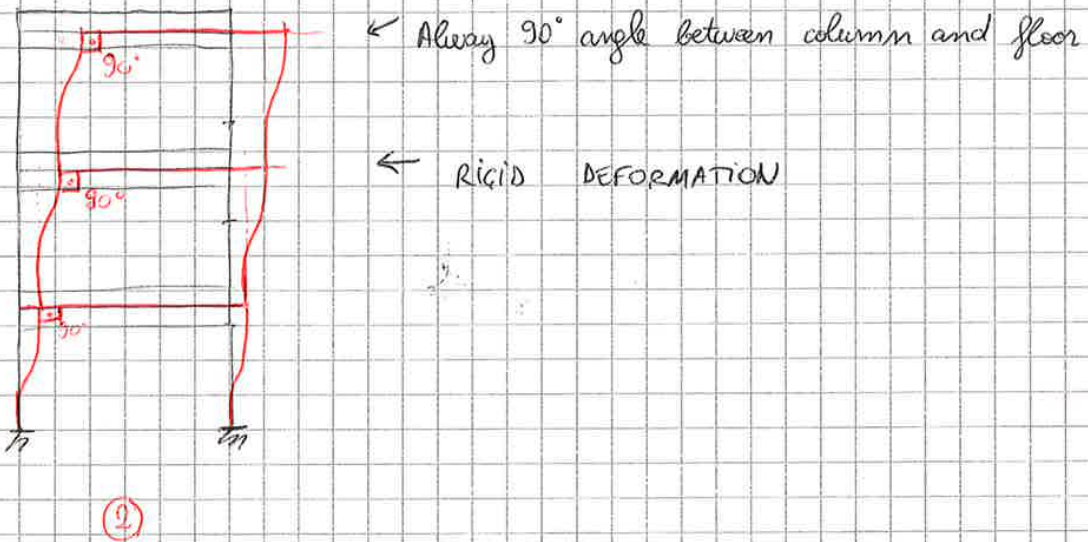 ← Alway 90° angle between column and floor
90°
← RIGID DEFORMATION
90°
90°
2